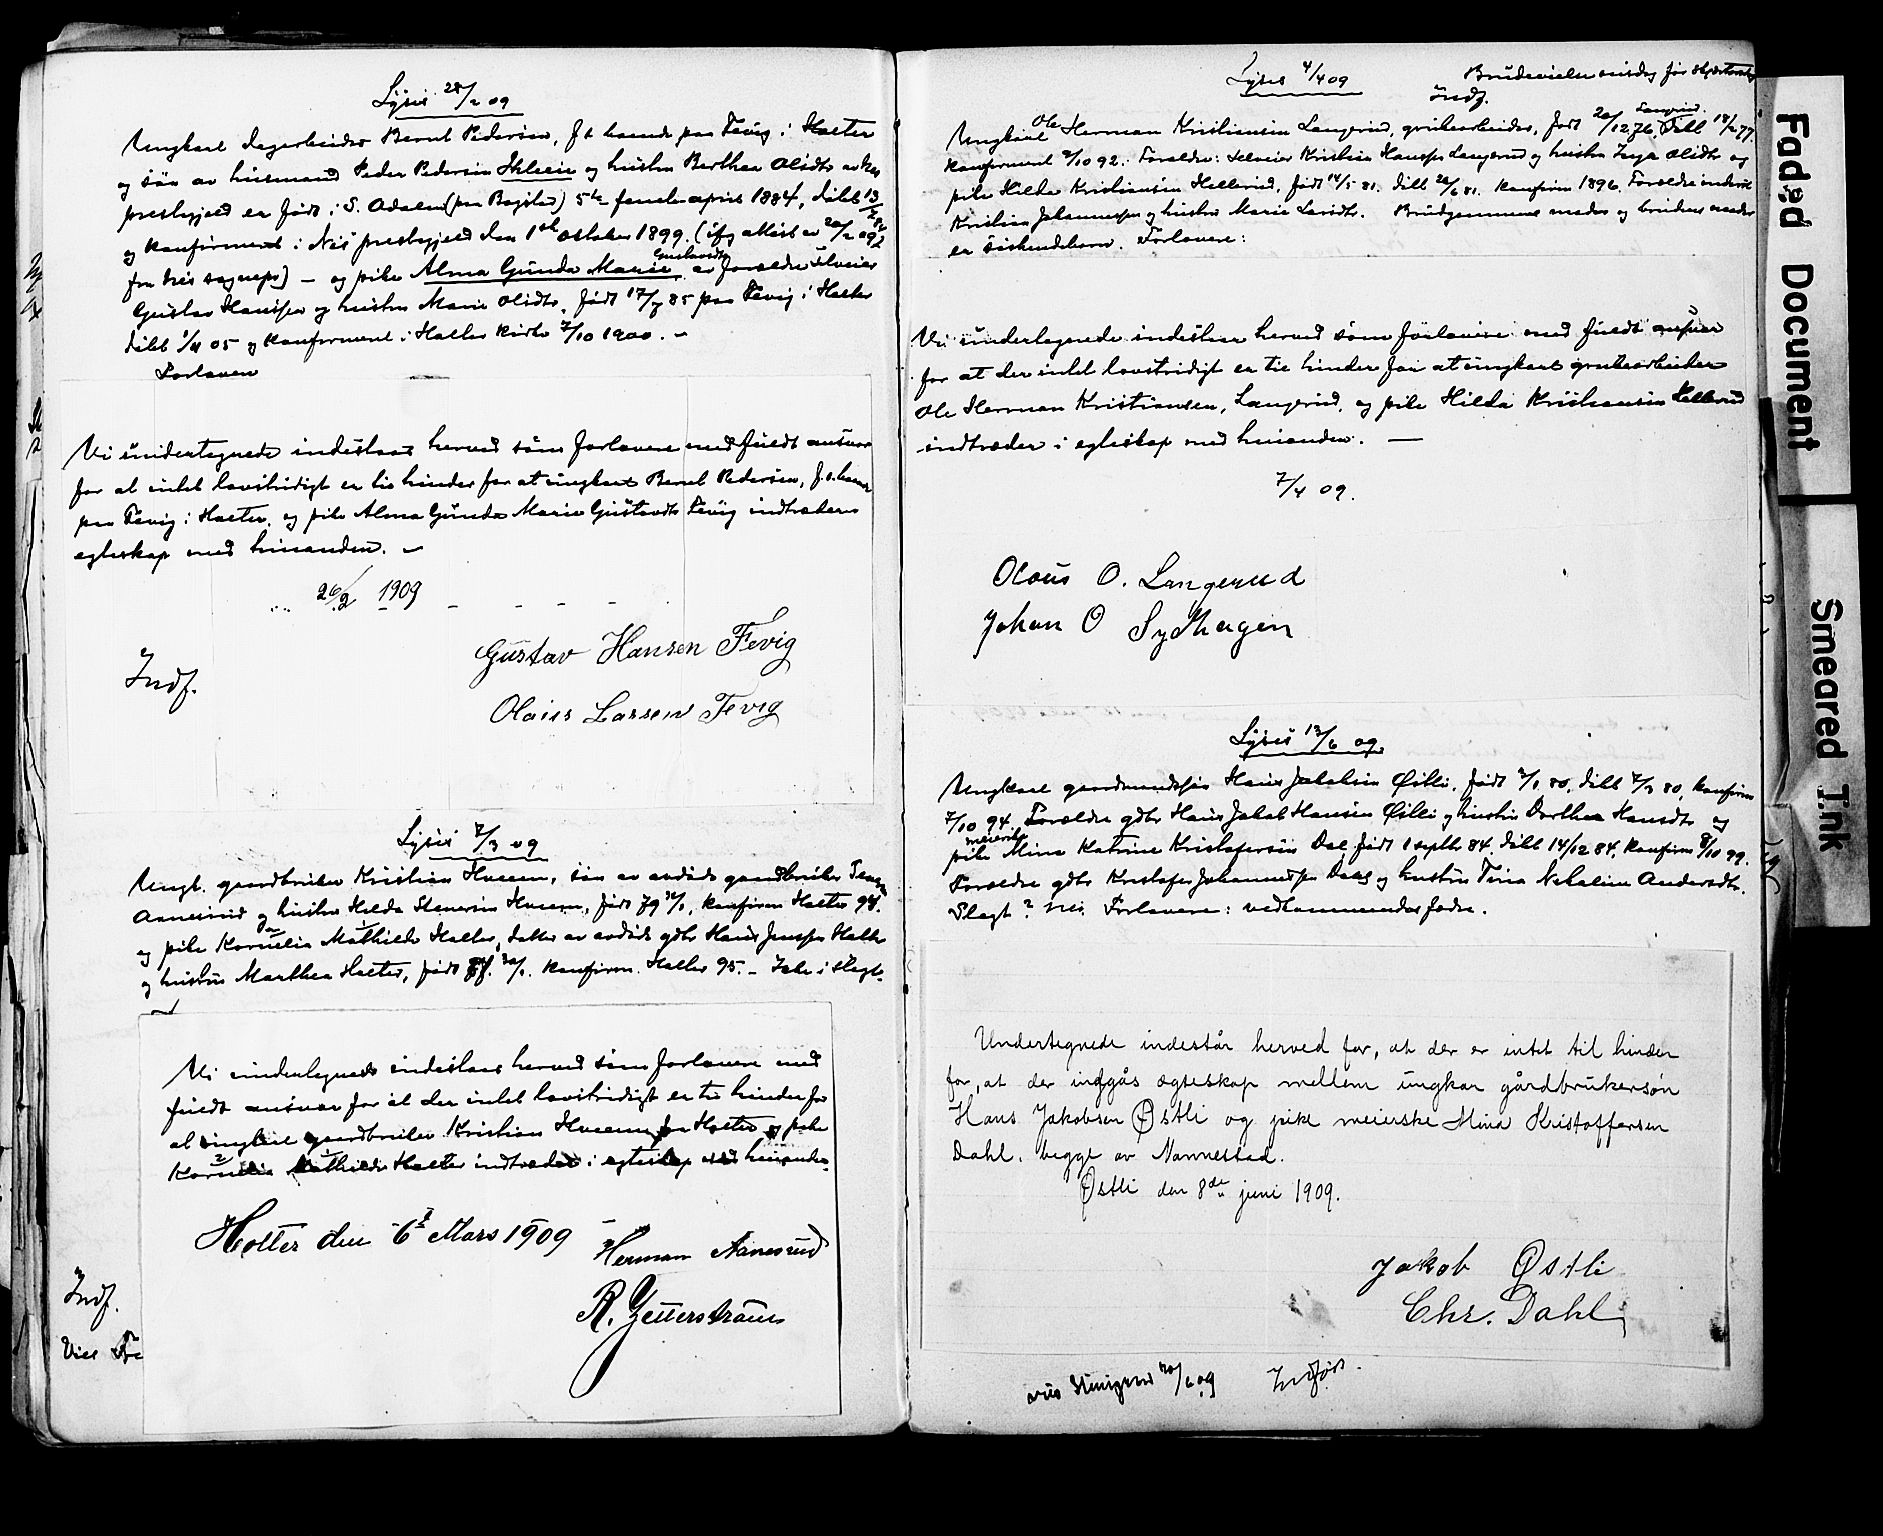 Lyses 28/2 09
Ungkarl dagarbeider Bernt Pedersen, f. t. boende paa Tevig i Holter
og søn av husmand Peder Pedersen og hustru Berthea Olsdtr av Nes
prestegjeld er født i S. Odalen (paa ) 5te februar april 1884, døbt 13/
og konfirmert i Nes prestegjeld den 1ste oktober 1899. (ifg attest av 20/2 09
fra Nes sogneprest) — og pike Alma Gunda Marie Gustavsdtr av forældre selveier
Gustav Hansen og hustru Marie Olsdtr, født 17/7 85 paa Tevig i Holter
døbt 1/4 05 og konfirmert i Holter kirke 7/10 1900. —
Forlovere
Vi undertegnede indestaar herved som forlovere med fuldt ansvar
for at intet lovstridigt er til hinder for at ungkarl Bernt Pedersen, f. t. boende
paa Tevig i Holter, og pike Alma Gunda Marie Gustavsdtr Tevig indtræder i
egteskap med hinanden. —
26/2 1909
Gustav Hansen Tevig
Olaus Larsen Tevig
Indf.
Lyses 7/3 09
Ungk. gaardbruker Kristian Hveem, søn av avdøde gaardbruker
Aanesrud og hustru Helda Stenersen Hveem, født 79 , konfirm Holter 94.
og pike Kornelia Mathilde Holter, datter av avdøde gbr Hans Jensen Holter
og hustru Marthea Holter, født , konfirm. Holter 95. — Ikke i slegt.
Vi undertegnede indestaar herved som forlovere med
fuldt ansvar for at der intet lovstridigt er til hinder for
at ungkarl gaardbruker Kristian Hveem fra Holter og pike
Kornelia Mathilde Holter indtræder i egteskap med hinanden
Holter den 6te Mars 1909
Herman Aanesrud
R. Zetterstrøm
Indf.
Viet
Lyses 4/4 09
Brudevielse onsdag før
Indf.
Ungkarl Ole Herman Kristiansen Langerud, grubearbeider, født 20/12 76, Langerud. døbt 18/2 77.
konfirmert 2/10 92. Forældre: selveier Kristian Hansen Langerud og hustru Inger Olsdtr og
pike Hilda Kristiansen Hellerud, født 14/5 81. døbt 26/6 81. konfirm 1896. Forældre inderst
Kristian Johannessen og hustru Marie Larsdtr. Brudgommens moder og brudens moder
er søskendebarn. Forlovere:
Vi undertegnede indestaar herved som forlovere med fuldt ansvar
for at der intet lovstridigt er til hinder for at ungkarl grubearbeider
Ole Herman Kristiansen, Langerud, og pike Hilda Kristiansen Hellerud
indtræder i egteskap med hinanden. —
7/4 09.
Olaus O. Langerud
Johan O Sydhagen
Lyses 13/6 09
Ungkarl gaardmandssøn Hans Jakobsen Østli, født 2/1 80, døbt 7/3 80, konfirm
7/10 94. Forældre gbr Hans Jakob Hansen Østli og hustru Dorthea Hansdtr og
pike meierske Mina Katrine Kristofersen Dal født 1 septbr 84. døbt 14/12 84, konfirm 8/10 99.
Forældre gbr Kristofer Johannessen Dahl og hustru Tina Nekoline Andersdtr.
Slegt? Nei. Forlovere: vedkommendes fædre.
Undertegnede indestår herved for, at der er intet til hinder
for, at der indgås ægteskap mellem ungkar gårdbrukersøn
Hans Jakobsen Østli og pike meierske Mina Kristoffersen
Dahl, begge av Nannestad.
Østli den 8de juni 1909.
Jakob Østli
Chr. Dahl
viet 20/6 09 Indført.
Faded Document
Smeared Ink